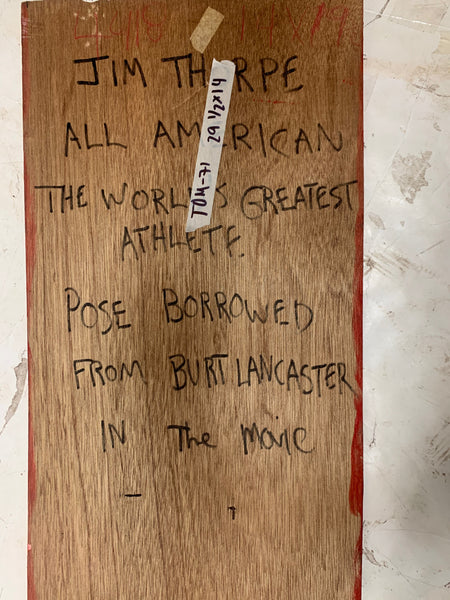 JIM THORPE
ALL AMERICAN
THE WORLD'S GREATEST
ATHLETE.
POSE BORROWED
FROM BURT LANCASTER
IN The movie
TOM-71 29 1/2x14